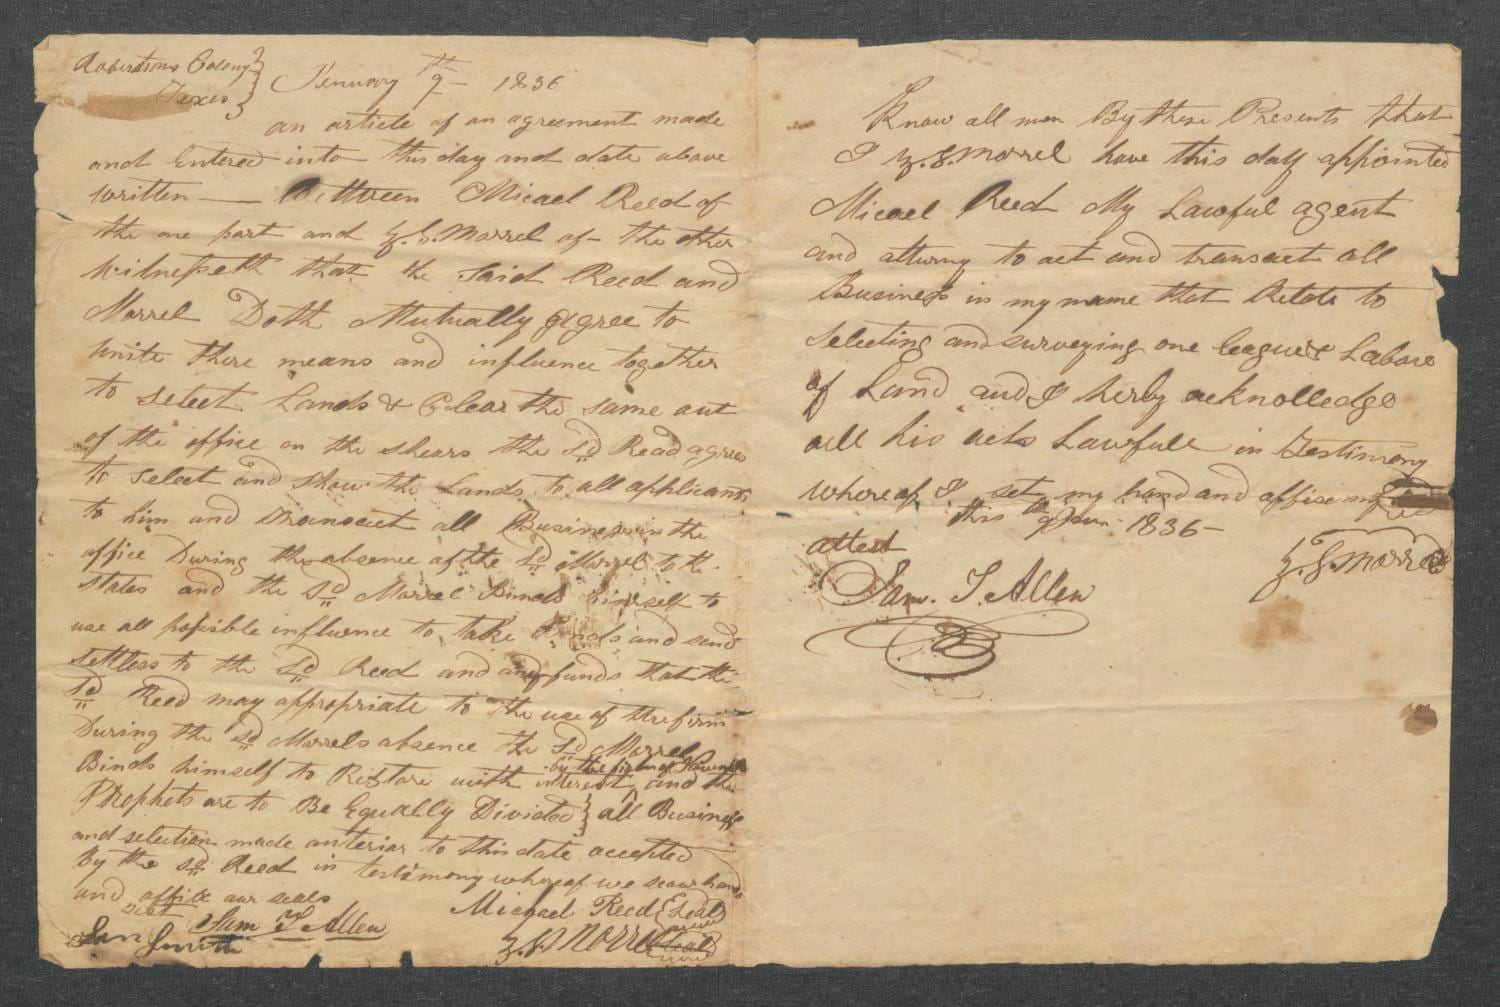 Robertsons Colony }
Texas } Jenuary 9th 1836
an article of an agreement made
and Entered into this day and date above
written — Bettween Micael Reed of
the one part and Z.S. Morrel of the other
witnesseth that the Said Reed and
Morrel Doth Mutually agree to
unite there means and influence together
to select Lands & Clear the same out
of the office on the shears the Sd Read agrees
to select and show the Lands to all applicants
to him and transact all Business in the
office During the absence of the Sd Morrel to the
states and the Sd Morrel Binds himself to
use all possible influence to take and send
settlers to the Sd Reed and any funds that the
Sd Reed may appropriate to the use of the firm
During the Sd Morrels absence the Sd Morrel
Binds himself to Restore with interest by the first of and the
Prophets are to Be Equally Divided } all Business
and selection made anterior to this date accepted
By the Sd Reed in testimony whereof we set our hands
and affix our seals
Sam T Allen Michael Reed (Seal)
Smith Z.S. Morrel (Seal)
Know all men By these Presents that
I Z.S. Morrel have this day appointed
Micael Reed My Lawful agent
and atturny to act and transact all
Business in my name that Relate to
Selecting and surveying one league & Labore
of Land and I herby acknolledge
all his acts Lawfull in Testimony
whereof I set my hand and affixe my
this 9th Jan 1836
attest Z.S. Morrel
Sam. T Allen